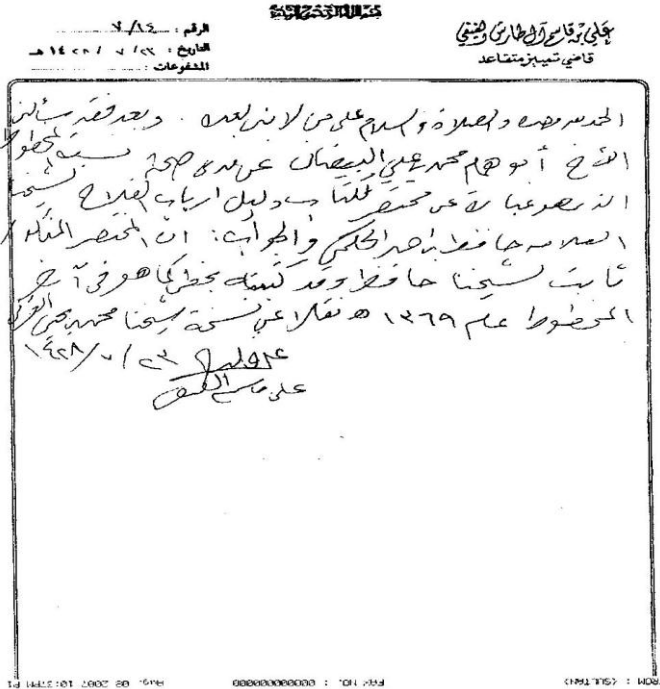 بسم الله الرحمن الرحيم
علي بن قاسم آل طارش الفيفي
قاضي تمييز متقاعد
الرقم : ٧/١٤
التاريخ : ٢٣ / ٧ / ١٤٢٨ هـ
المشفوعات :
الحمد لله وحده والصلاة والسلام على من لا نبي بعده . وبعد فقد سألني
الأخ أبو همام محمد بن علي البيضاني عن مدى صحة نسبة المخطوط
الذي هو عبارة عن مختصر لكتاب دليل أرباب الفلاح لشيخنا
العلامه حافظ بن احمد الحكمي والجواب : ان المختصر المذكور
ثابت لشيخنا حافظ وقد كتبته بخطي كما هو في آخر
المخطوط عام ١٣٦٩ هـ نقلا عن نسخة شيخنا محمد يحيى القرني
٢٣ / ٧ / ١٤٢٨
علي قاسم الفيفي
FROM : (SULTAN)
FAX NO. : 0000000000000
Aug. 08 2007 10:37PM P1